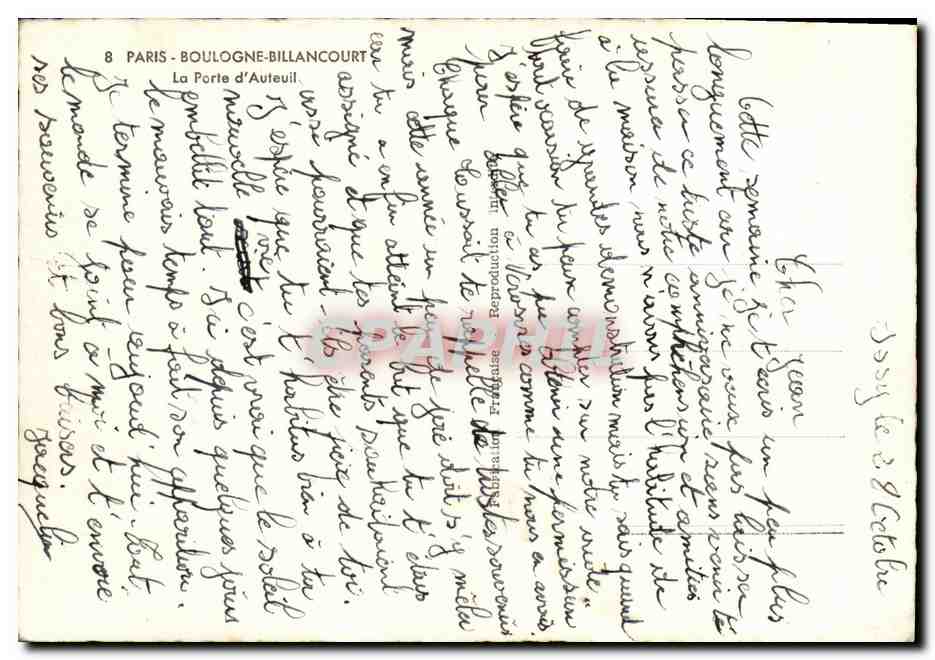 8 PARIS - BOULOGNE-BILLANCOURT
La Porte d'Auteuil
Issy le 28 Octobre
Cher Jean
Cette semaine je t'écris un peu plus
longuement car je ne veux pas laisser
passer ce triste anniversaire sans venir te
assurer de notre compréhension et amitiés
à la maison, nous n'avons pas l'habitude de
faire de grandes démonstration mais tu sais quand
tu peux compter sur notre aide.
J'espère que tu as pu obtenir une permission
pour aller à comme tu nous en avais
Chaque Toussaint te rappelle de tristes souvenirs
mais cette année un peu de joie doit s'y mêler
car tu a enfin atteint le but que tu t'étais
assigné et que tes parents souhaitaient
aussi pourraient-ils être fiers de toi.
J'espère que tu t'habitues bien à ta
nouvelle vie c'est vrai que le soleil
embellit tout. Ici depuis quelques jours
le mauvais temps à fait son apparition.
Je termine pour aujourd'hui. Tout
le monde se joint a moi et t'envoie
ses souvenirs et bons baisers.
Jacqueline
Fabrication Française - Reproduction Interdite
CPARAMA